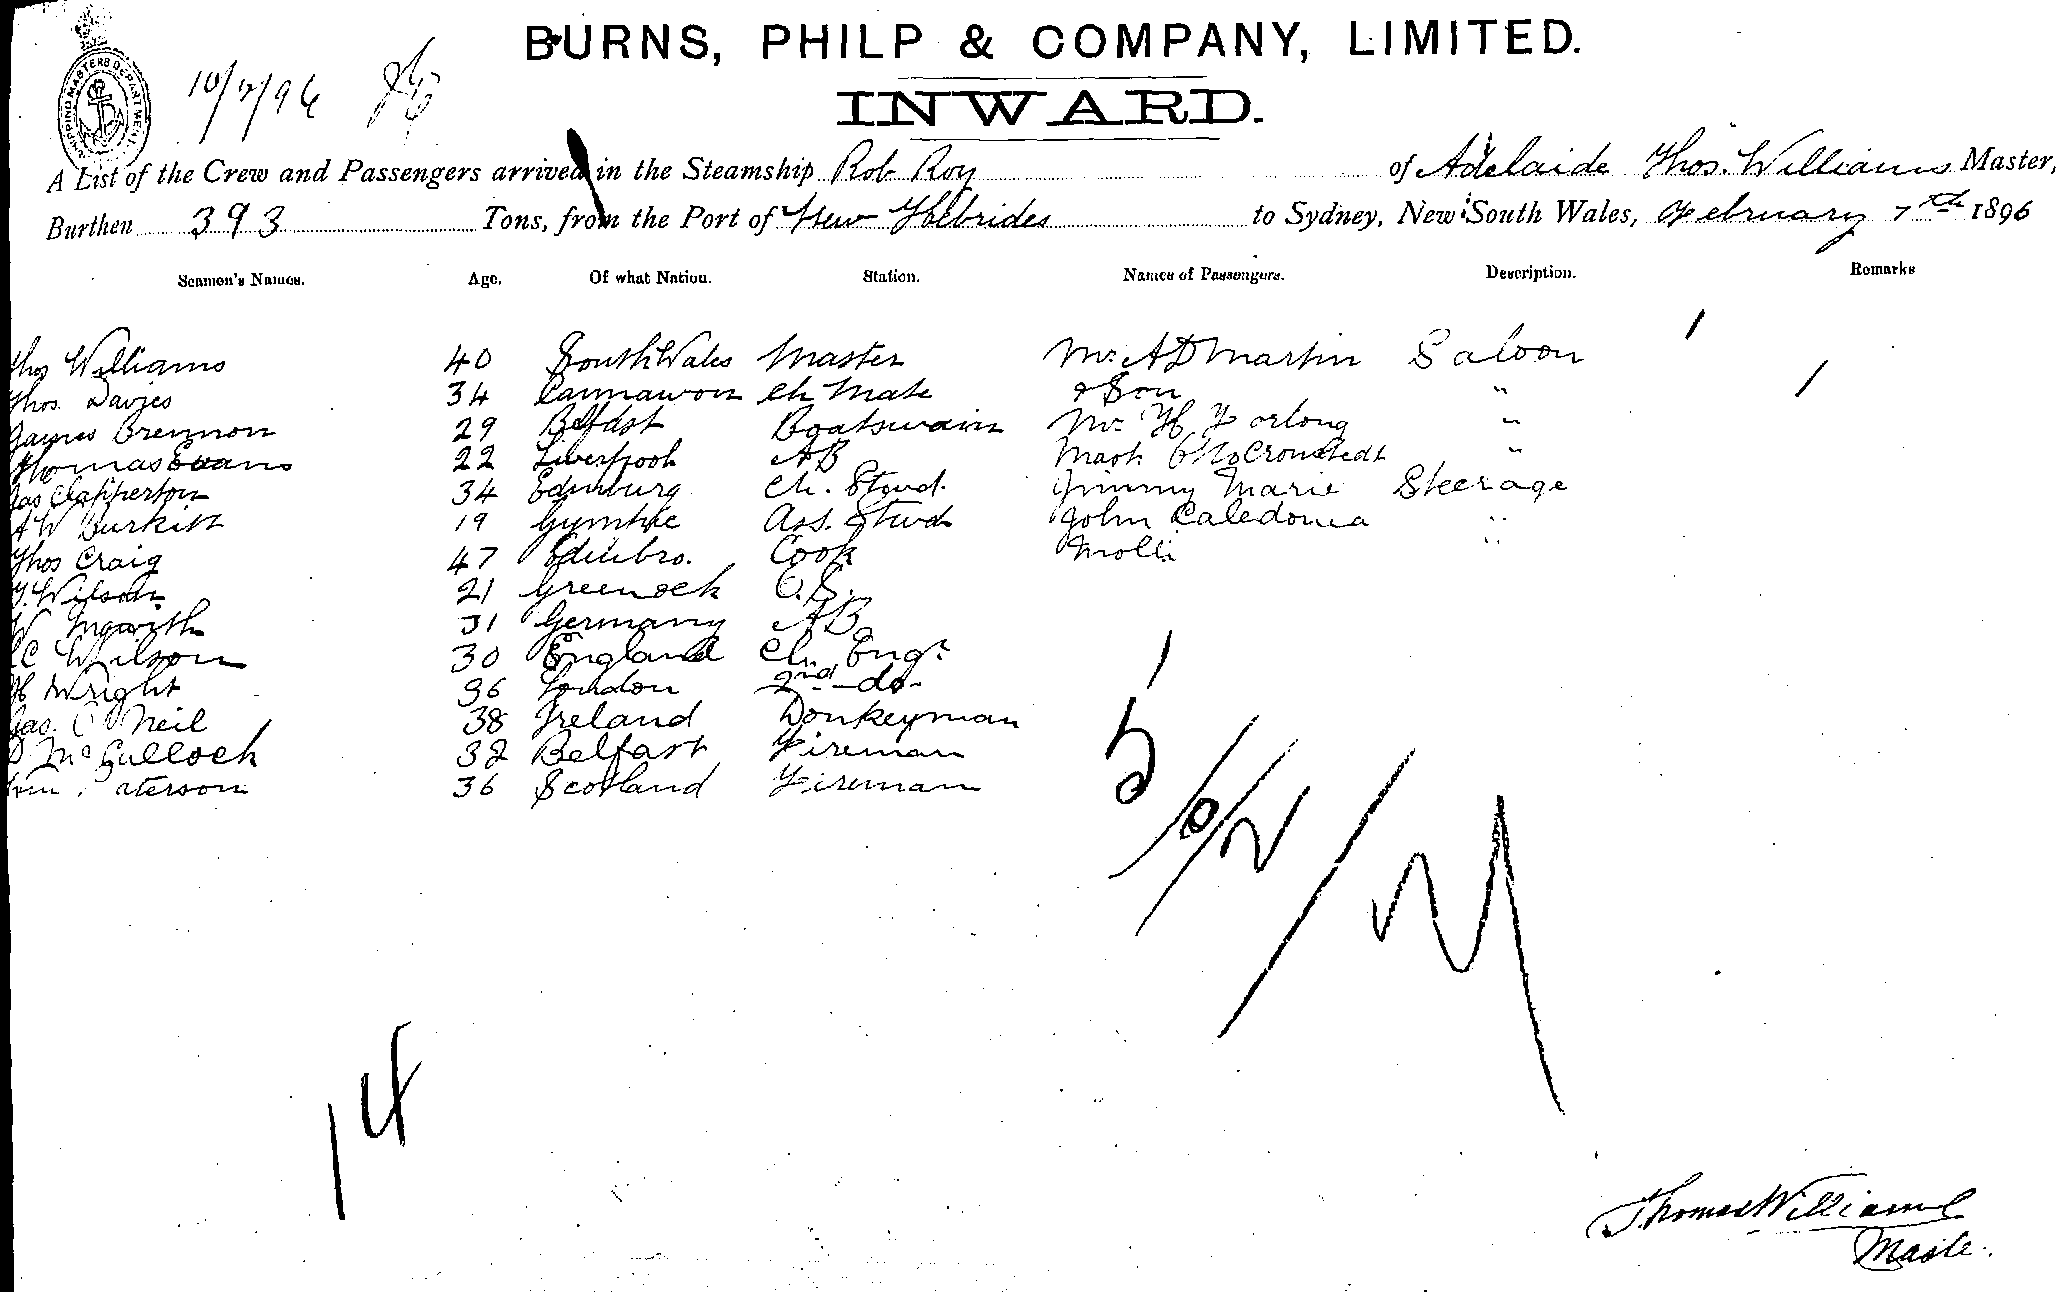 BURNS, PHILP & COMPANY, LIMITED.
INWARD.
SHIPPING MASTERS DEPARTMENT
10/2/96
A List of the Crew and Passengers arrived in the Steamship Rob Roy of Adelaide Thos. Williams Master,
Burthen 393 Tons, from the Port of New Hebrides to Sydney, New South Wales, February 7th 1896
Seamen's Names. Age. Of what Nation. Station. Names of Passengers. Description. Remarks
Thos Williams 40 South Wales Master Mr. A D Martin Saloon
Thos. Davies 34 Carnarvon Ch Mate & Son "
James Brennon 29 Belfast Boatswain Mr H Forlong "
Thomas Evans 22 Liverpool AB Mast Cronstedt "
Jas Clapperton 34 Edinburg Ch. Stewd. Jimmy Marie Steerage
A W Burkitt 19 Gympie Ass. Stewd John Caledonia "
Thos Craig 47 Edinbro. Cook Molli "
Wilson 21 Greenock O.S.
W 31 Germany AB
C Wilson 30 England Ch. Engr
H Wright 36 London 2nd do
Jas. O Neil 38 Ireland Donkeyman
D McCulloch 32 Belfast Fireman
Wm Paterson 36 Scotland Fireman
5/0/2/
14
Thomas Williams
Master